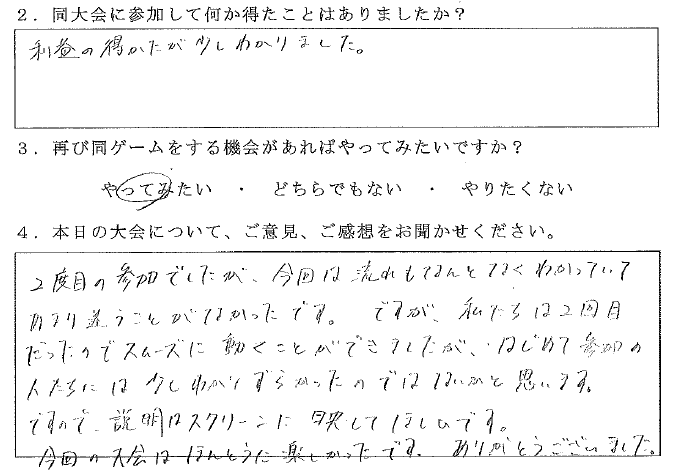 ２．同大会に参加して何か得たことはありましたか？
利益の得かたが少しわかりました。
３．再び同ゲームをする機会があればやってみたいですか？
やってみたい ・ どちらでもない ・ やりたくない
４．本日の大会について、ご意見、ご感想をお聞かせください。
２度目の参加でしたが、今回は流れもなんとなくわかっていて
あまり迷うことがなかったです。 ですが、私たちは２回目
だったのでスムーズに動くことができましたが、はじめて参加の
人たちには少しわかりずらかったのではないかと思います。
ですので、説明はスクリーンに 映してほしいです。
今回の大会はほんとうに楽しかったです。 ありがとうございました。